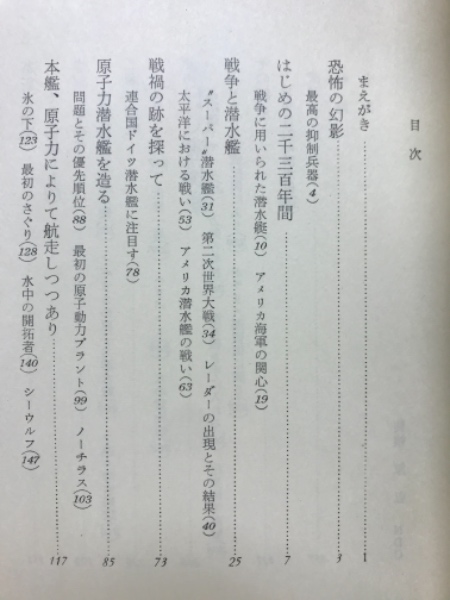 目次
まえがき……1
恐怖の幻影……3
最高の抑制兵器(4)
はじめの二千三百年間……7
戦争に用いられた潜水艇(10) アメリカ海軍の関心(19)
戦争と潜水艦……25
“スーパー”潜水艦(31) 第二次世界大戦(34) レーダーの出現とその結果(40)
太平洋における戦い(53) アメリカ潜水艦の戦い(63)
戦禍の跡を探って……73
連合国ドイツ潜水艦に注目す(78)
原子力潜水艦を造る……85
問題とその優先順位(88) 最初の原子動力プラント(99) ノーチラス(103)
本艦、原子力によりて航走しつつあり……117
氷の下(123) 最初のさぐり(128) 水中の開拓者(140) シーウルフ(147)